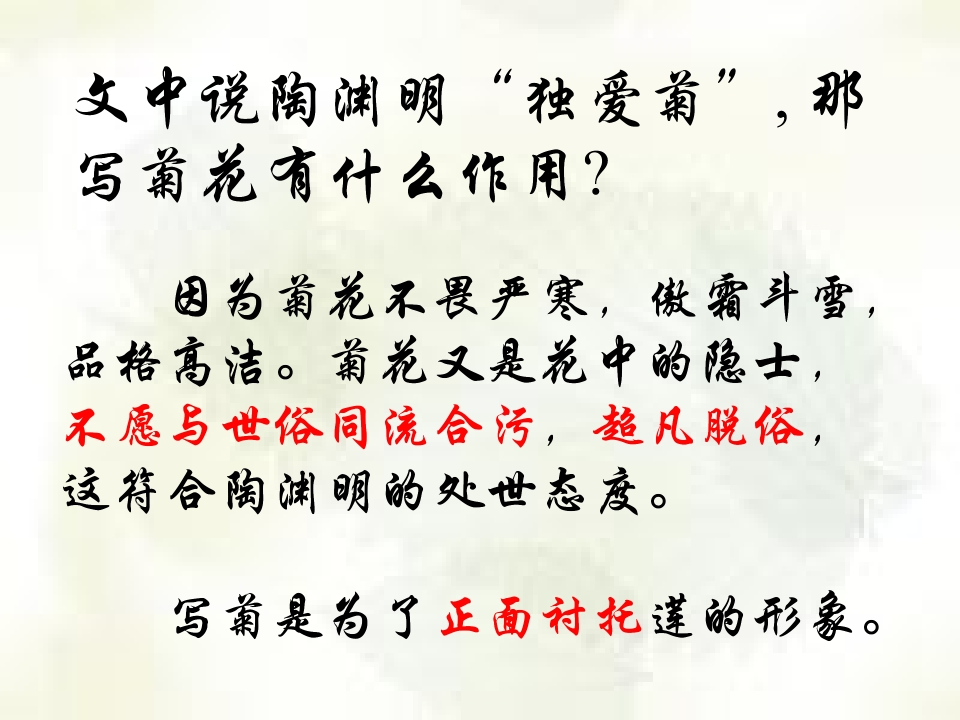 文中说陶渊明“独爱菊”,那
写菊花有什么作用？
因为菊花不畏严寒，傲霜斗雪，
品格高洁。菊花又是花中的隐士，
不愿与世俗同流合污，超凡脱俗，
这符合陶渊明的处世态度。
写菊是为了正面衬托莲的形象。